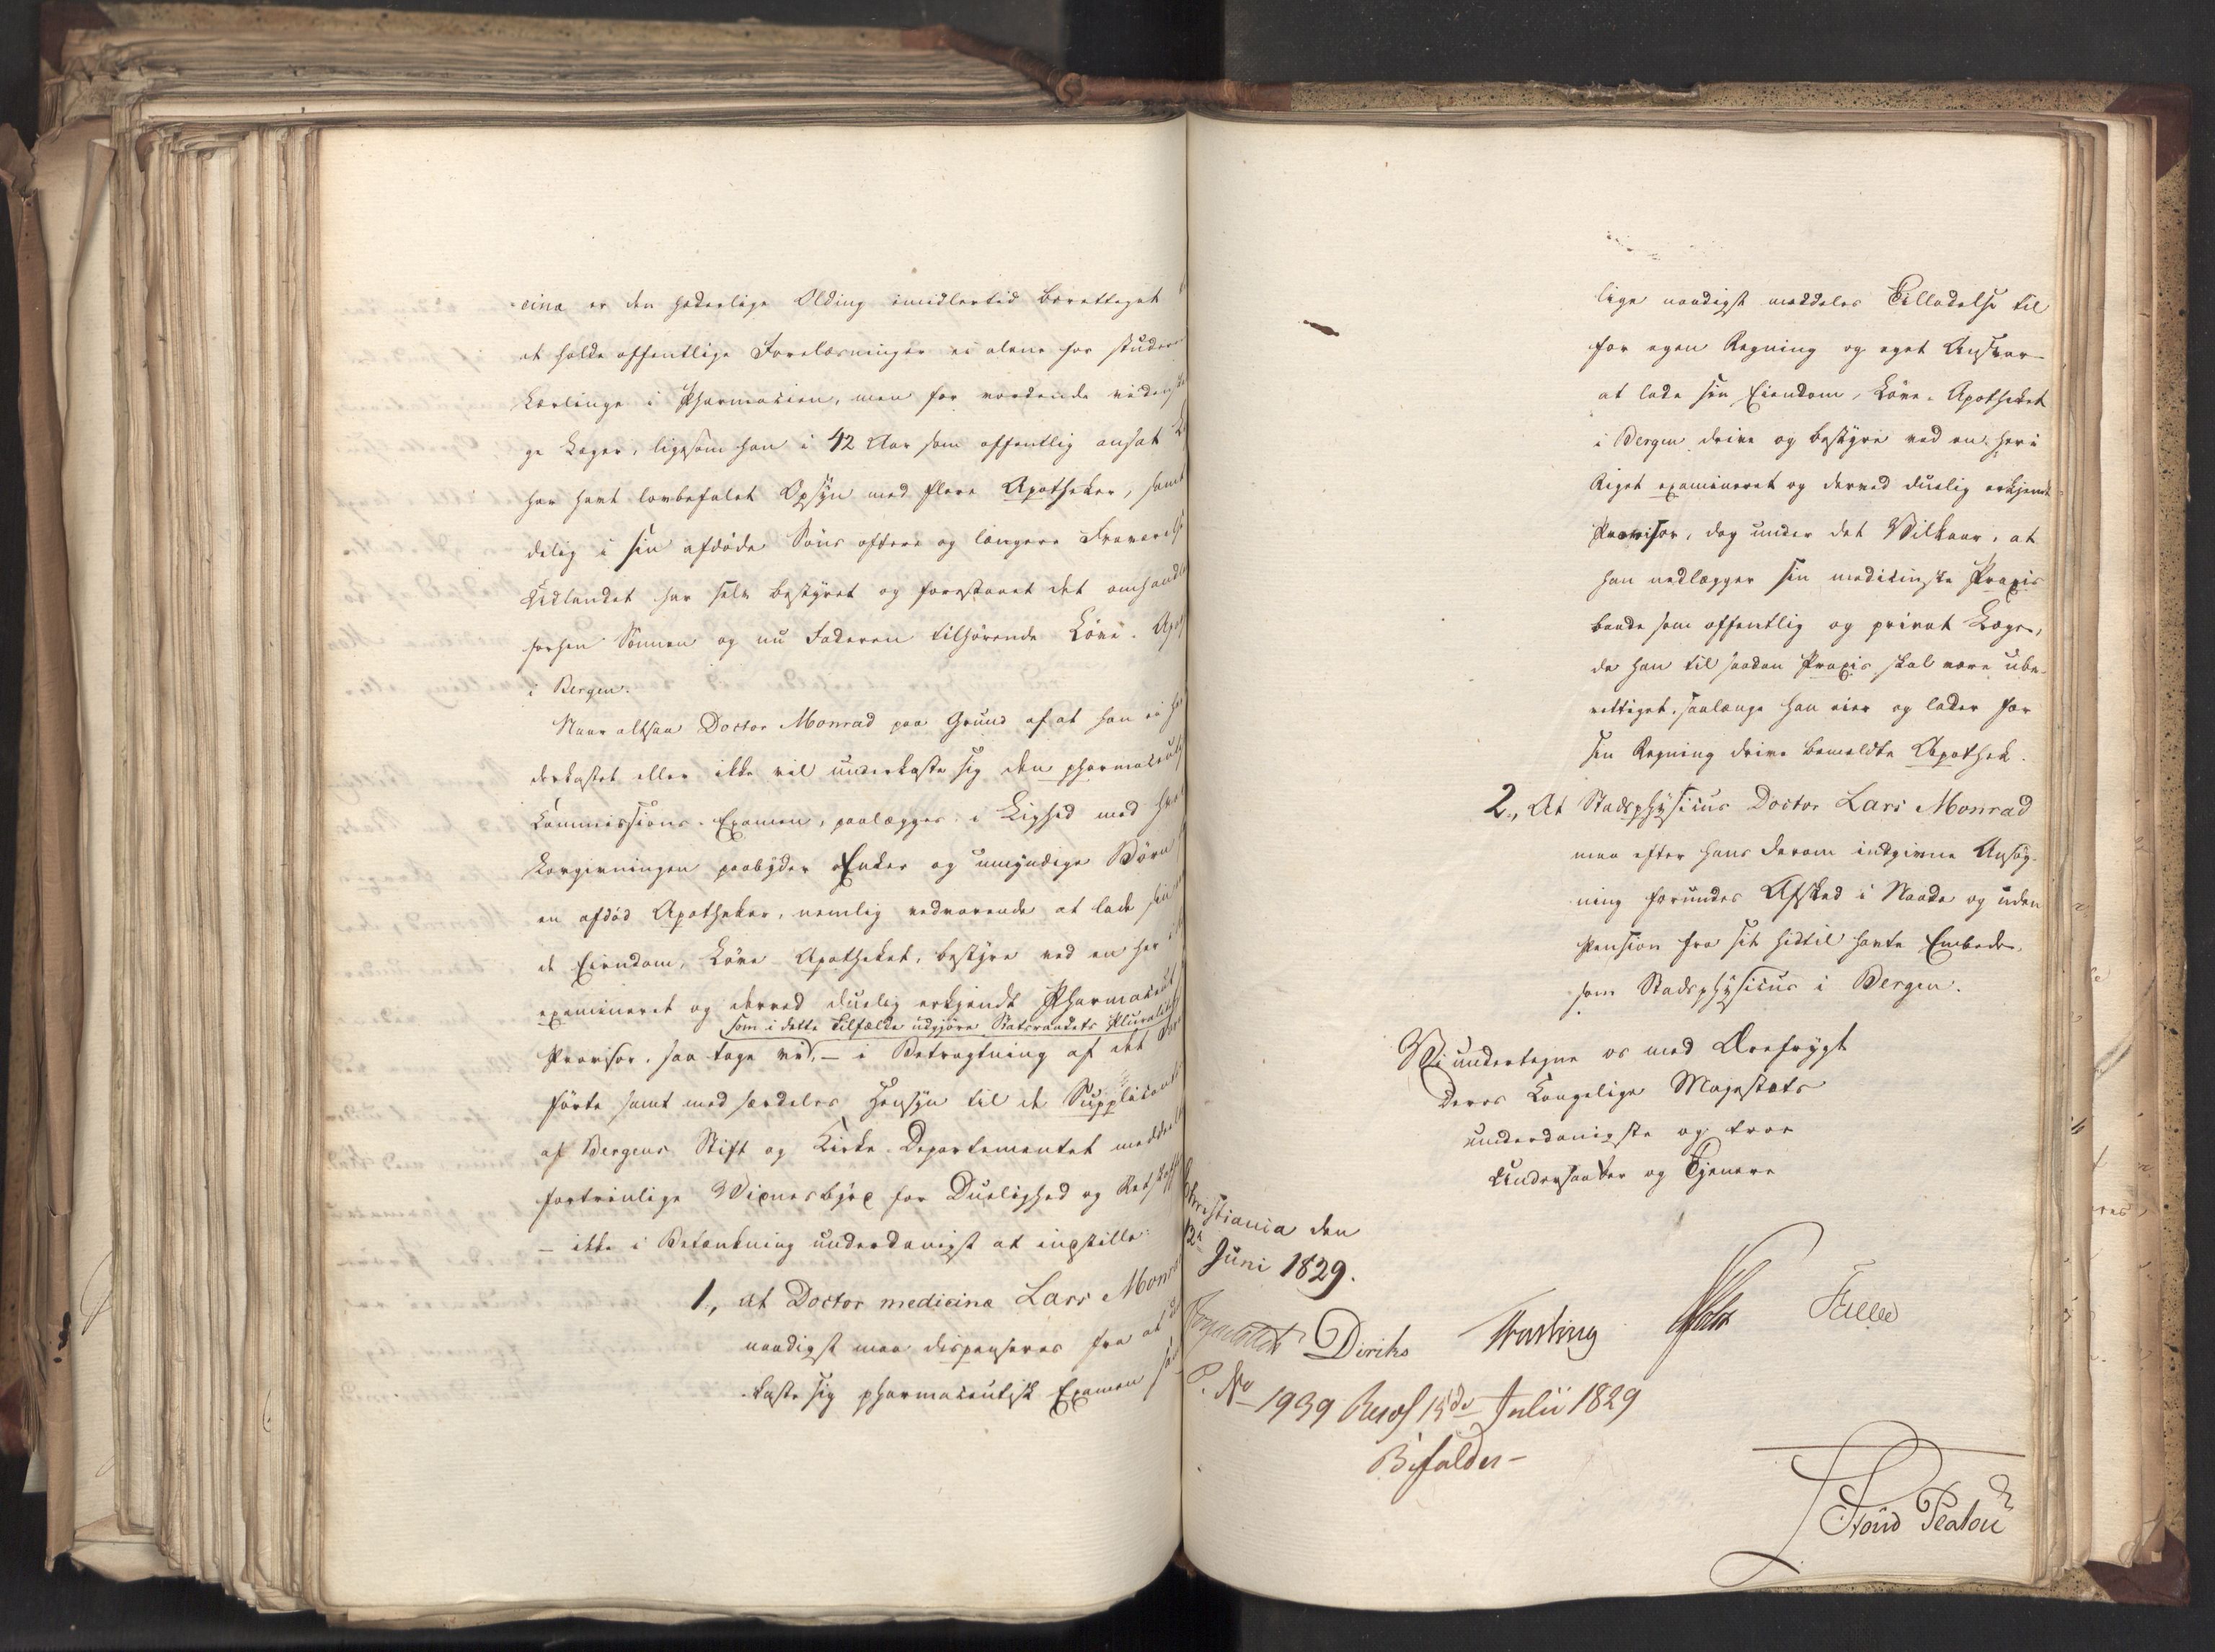 cina er den hæderlige Olding imidlertid berettiget
at holde offentlige Forelæsninger ei alene for studere
Lærlinge i Pharmacien, men for vordende vidensk
ge Læger, ligesom han i 42 Aar som offentlig ansat
har havt lovbefalet Opsyn med flere Apotheker, samt
delig i sin afdøde Søns oftere og længere Fraværelse
Udlandet har selv bestyret og forestaaet det omhandl
forhen Sønnen og nu Faderen tilhørende Løve-Apo
i Bergen.
Naar altsaa Doctor Monrad paa Grund af at han ei h
derkastet eller ikke vil underkaste sig den pharmaceut
Commissions-Examen, paalægges i Liighed med hva
Lovgivningen paabyder Enker og umyndige Børn
en afdød Apotheker, nemlig vedvarende at lade sin
de Eiendom, Løve-Apotheket, bestyre ved en her
examineret og derved duelig erkjendt Pharmaceut
som i dette Tilfælde udgjøre Statsraadets Pluralitet
Provisor, saa tage vi, – i Betragtning af det
førte samt med særdeles Hensyn til de Supplicant
af Bergens Stift og Kirke-Departementet meddeelt
fortrinlige Vidnesbyrd for Duelighed og Retskaff
– ikke i Betænkning underdanigst at indstille:
1, at Doctor medicinæ Lars Monra
naadigst maa dispenseres fra at
kaste sig pharmaceutisk Examen
lige naadigst meddeles Tilladelse til
for egen Regning og eget Ansvar
at lade sin Eiendom, Løve-Apotheket
i Bergen drive og bestyre ved en her i
Riget examineret og derved duelig erkjendt
Provisor, dog under det Vilkaar, at
han nedlægger sin medicinske Praxis
baade som offentlig og privat Læge,
da han til saadan Praxis skal være ube-
rettiget, saalænge han eier og lader for
sin Regning drive bemeldte Apothek.
2, At Stadsphysicus Doctor Lars Monrad
maa efter hans derom indgivne Ansøg-
ning forundes Afsked i Naade og uden
Pension fra sit hidtil havte Embede
som Stadsphysicus i Bergen.
Vi undertegne os med Ærefrygt
Deres Kongelige Majestæts
underdanigste og troe
Undersaatter og Tjenere
Christiania den
12te Juni 1829.
Diriks Treschow Holst Fasting
P. No 1939 Resol 15de Julii 1829
Bifaldes –